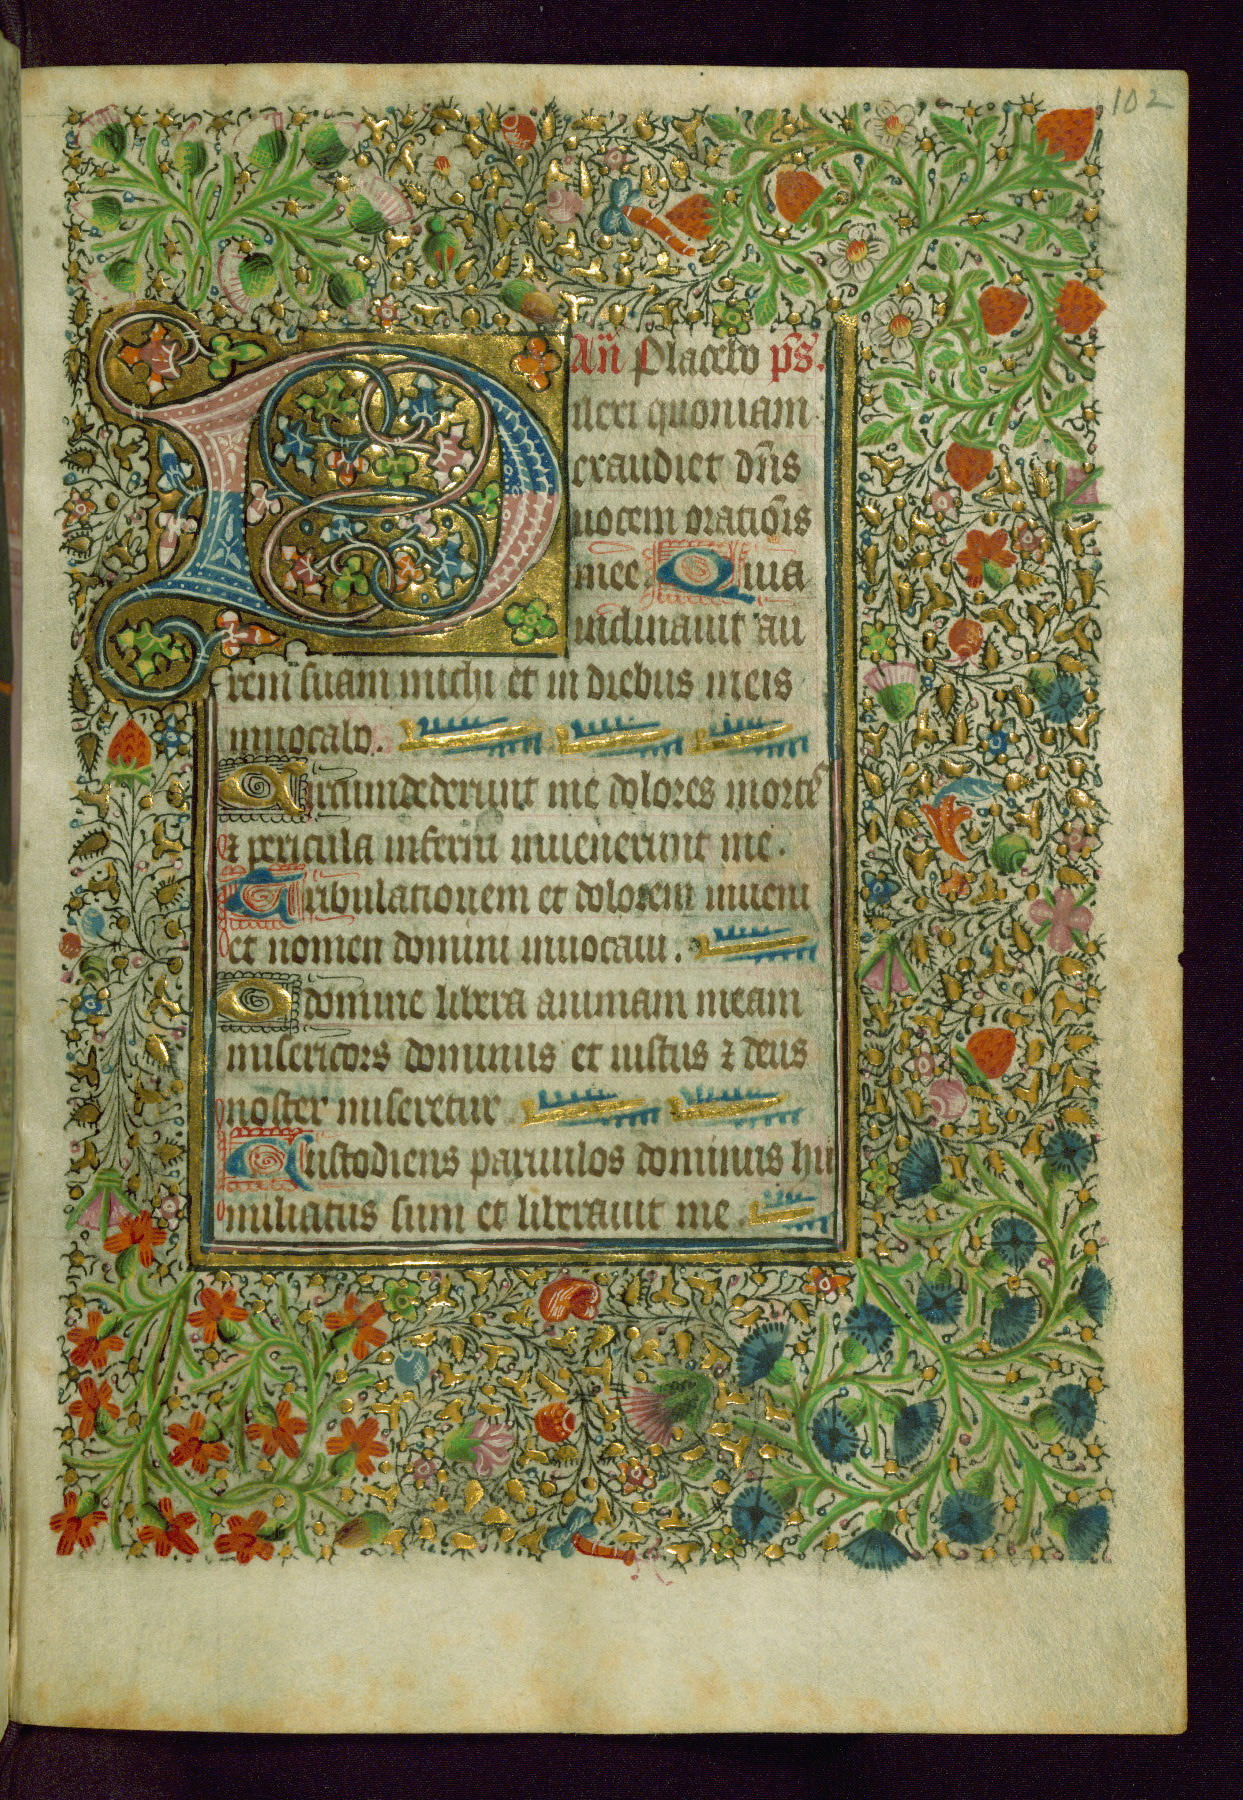 102
Añ Placebo p̄s.
Dilexi quoniam
exaudiet dn̄s
uocem oratiōis
mee Quia
inclinauit au
rem suam michi et in diebus meis
inuocabo.
Circumdederunt me dolores mortis
et pericula inferni inuenerunt me.
Tribulationem et dolorem inueni
et nomen domini inuocaui.
O domine libera animam meam
misericors dominus et iustus ⁊ deus
noster miseretur
Custodiens paruulos dominus hu
miliatus sum et liberauit me.